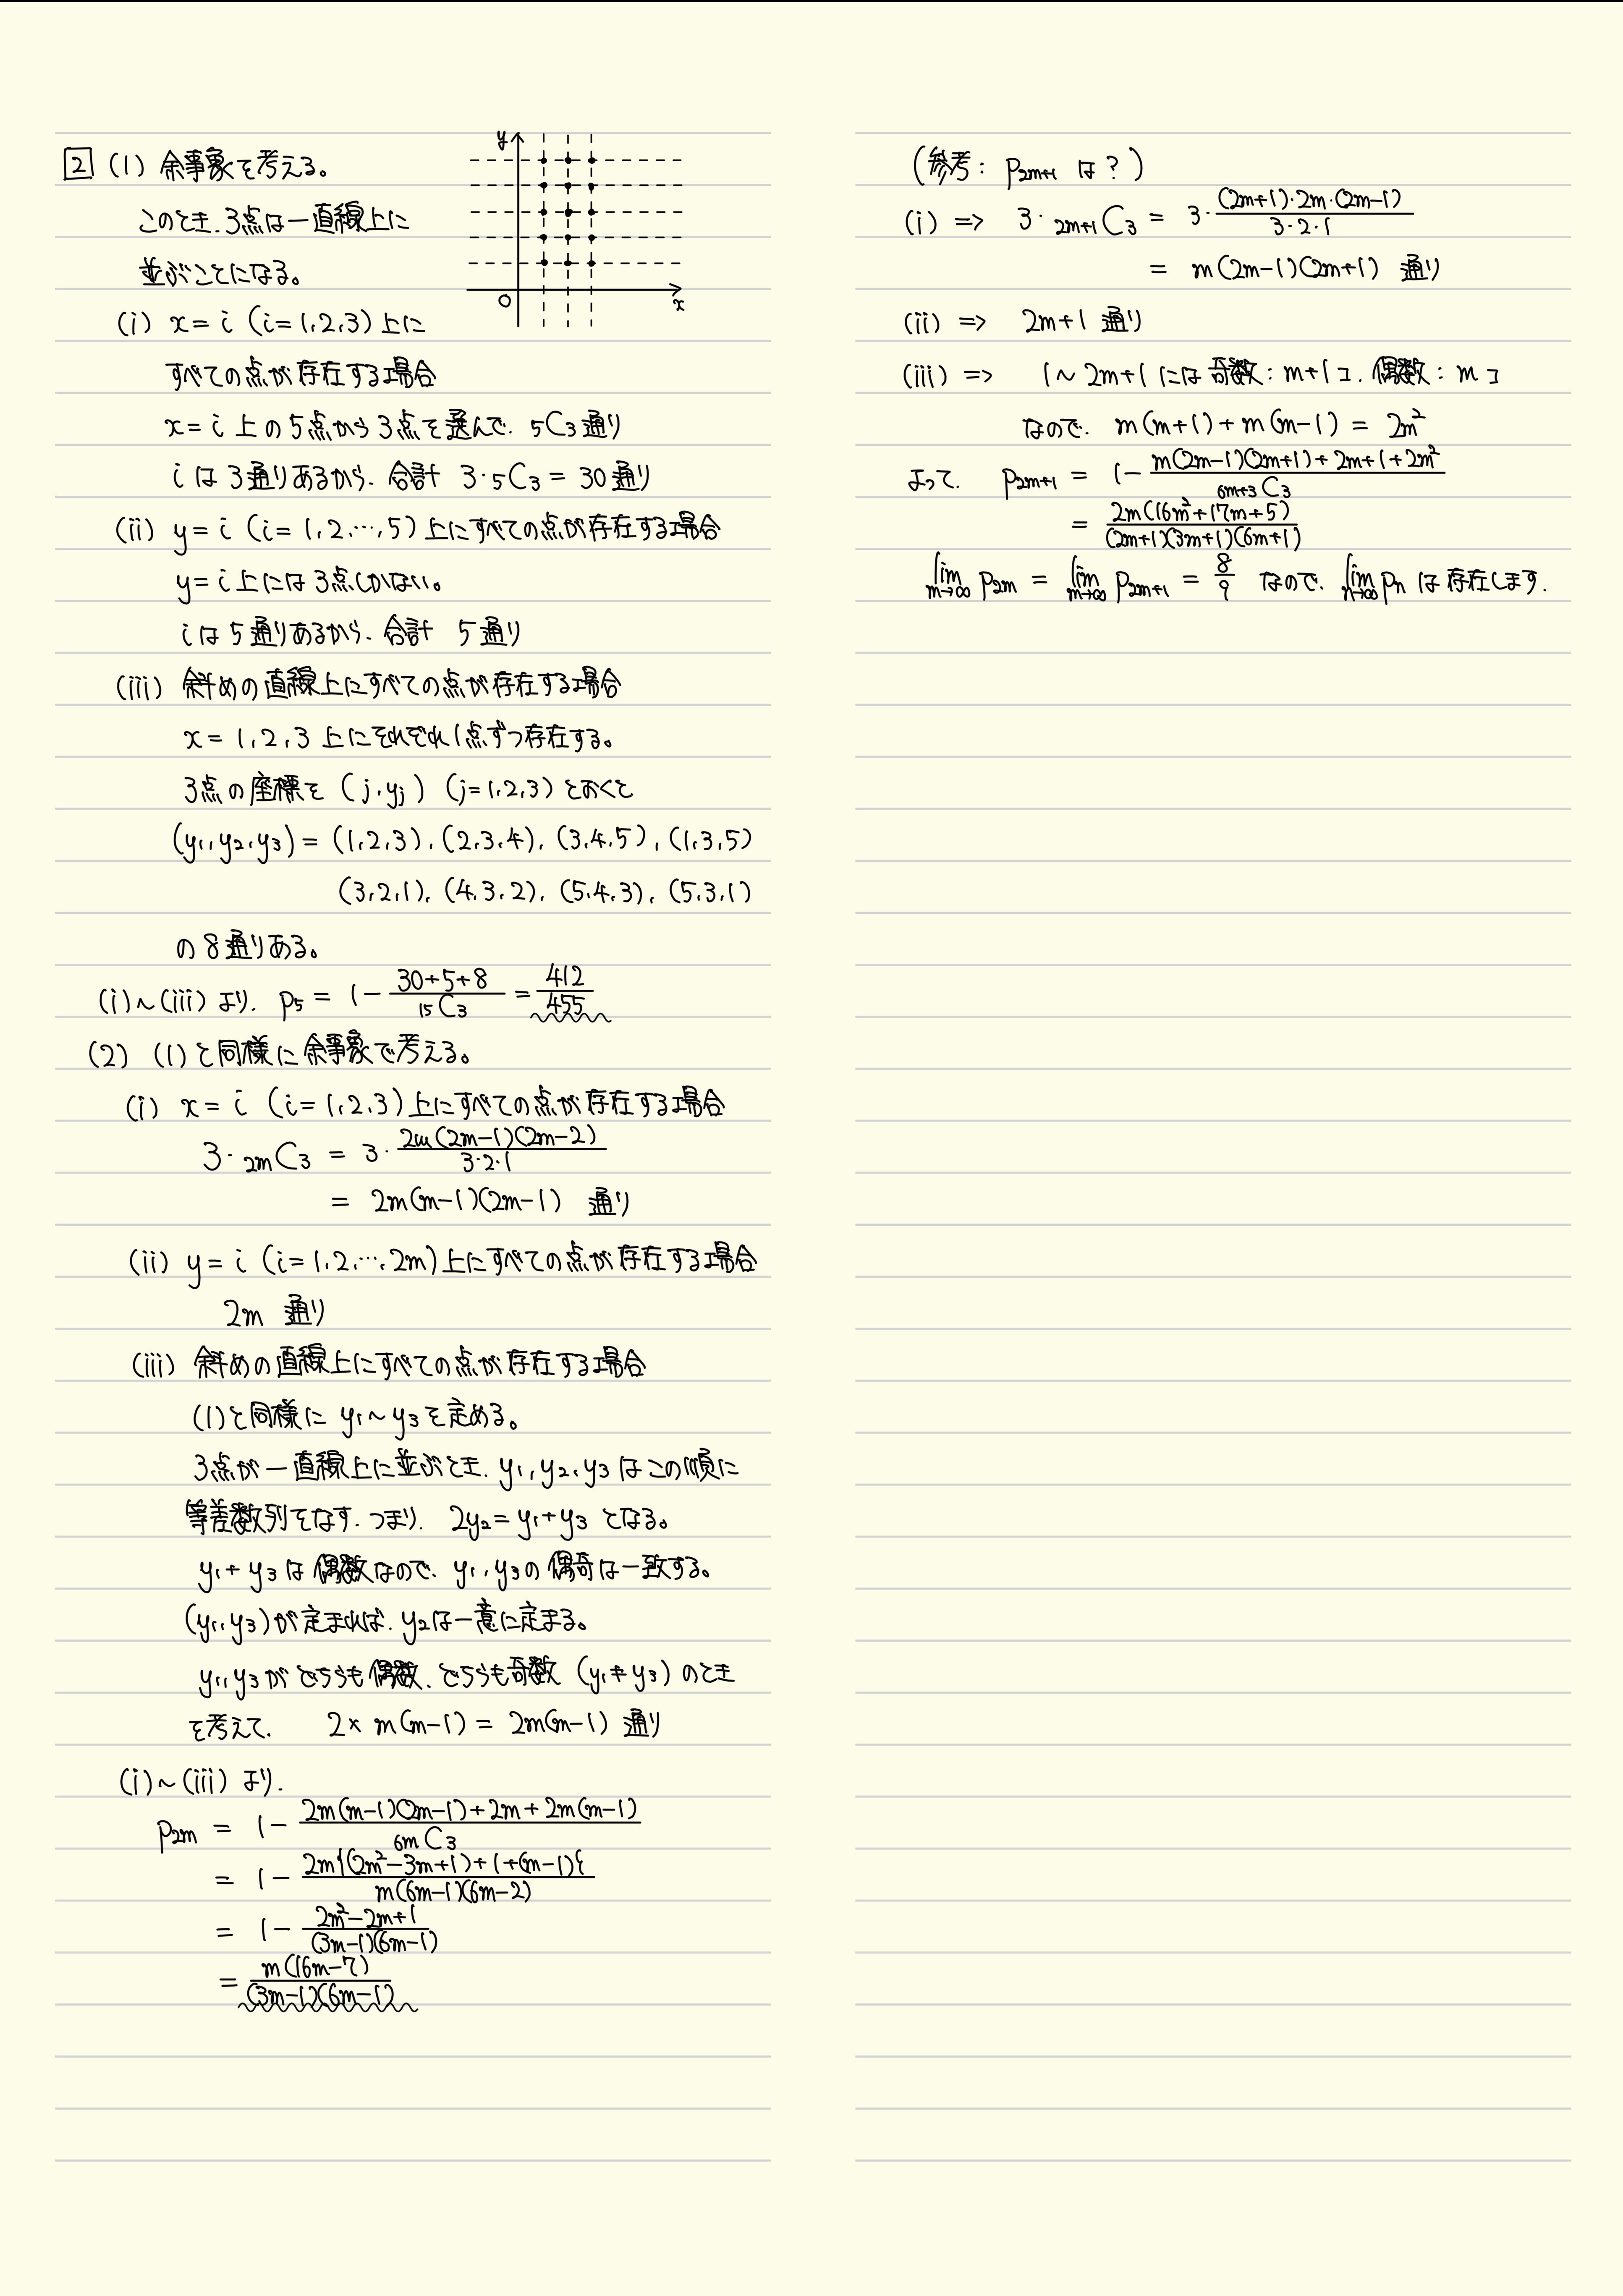 2 (1) 余事象を考える。
このとき、3点は一直線上に
並ぶことになる。
y
O
x
(i) x = i (i = 1, 2, 3) 上に
すべての点が存在する場合
x = i 上の5点から3点を選んで、 ₅C₃通り
i は 3通りあるから、合計 3・₅C₃ = 30通り
(ii) y = i (i = 1, 2, …, 5) 上にすべての点が存在する場合
y = i 上には3点しかない。
i は 5通りあるから、合計 5通り
(iii) 斜めの直線上にすべての点が存在する場合
x = 1, 2, 3 上にそれぞれ1点ずつ存在する。
3点の座標を (j, y_j) (j = 1, 2, 3) とおくと
(y₁, y₂, y₃) = (1, 2, 3), (2, 3, 4), (3, 4, 5), (1, 3, 5)
(3, 2, 1), (4, 3, 2), (5, 4, 3), (5, 3, 1)
の 8通りある。
(i)~(iii) より、 p₅ = 1 - (30+5+8)/₁₅C₃ = 412/455
(2) (1)と同様に余事象で考える。
(i) x = i (i = 1, 2, 3) 上にすべての点が存在する場合
3・₂ₘC₃ = 3・2m(2m-1)(2m-2)/3・2・1
= 2m(m-1)(2m-1) 通り
(ii) y = i (i = 1, 2, …, 2m) 上にすべての点が存在する場合
2m 通り
(iii) 斜めの直線上にすべての点が存在する場合
(1)と同様に y₁~y₃を定める。
3点が一直線上に並ぶとき、y₁, y₂, y₃はこの順に
等差数列をなす、つまり、 2y₂ = y₁ + y₃ となる。
y₁ + y₃ は偶数なので、y₁, y₃の偶奇は一致する。
(y₁, y₃)が定まれば、y₂は一意に定まる。
y₁, y₃がどちらも偶数、どちらも奇数 (y₁ ≠ y₃) のとき
を考えて、 2 × m(m-1) = 2m(m-1) 通り
(i)~(iii) より、
p₂ₘ = 1 - {2m(m-1)(2m-1) + 2m + 2m(m-1)}/₆ₘC₃
= 1 - 2m{(2m²-3m+1)+1+(m-1)}/m(6m-1)(6m-2)
= 1 - (2m²-2m+1)/(3m-1)(6m-1)
= m(16m-7)/(3m-1)(6m-1)
(参考: p₂ₘ₊₁ は?)
(i) => 3・₂ₘ₊₁C₃ = 3・(2m+1)・2m・(2m-1)/3・2・1
= m(2m-1)(2m+1) 通り
(ii) => 2m+1 通り
(iii) => 1~2m+1 には奇数: m+1コ、偶数: mコ
なので、 m(m+1) + m(m-1) = 2m²
よって、 p₂ₘ₊₁ = 1 - {m(2m-1)(2m+1) + 2m+1 + 2m²}/₆ₘ₊₃C₃
= 2m(16m²+17m+5)/(2m+1)(3m+1)(6m+1)
lim m→∞ p₂ₘ = lim m→∞ p₂ₘ₊₁ = 8/9 なので、 lim n→∞ pₙ は存在します.